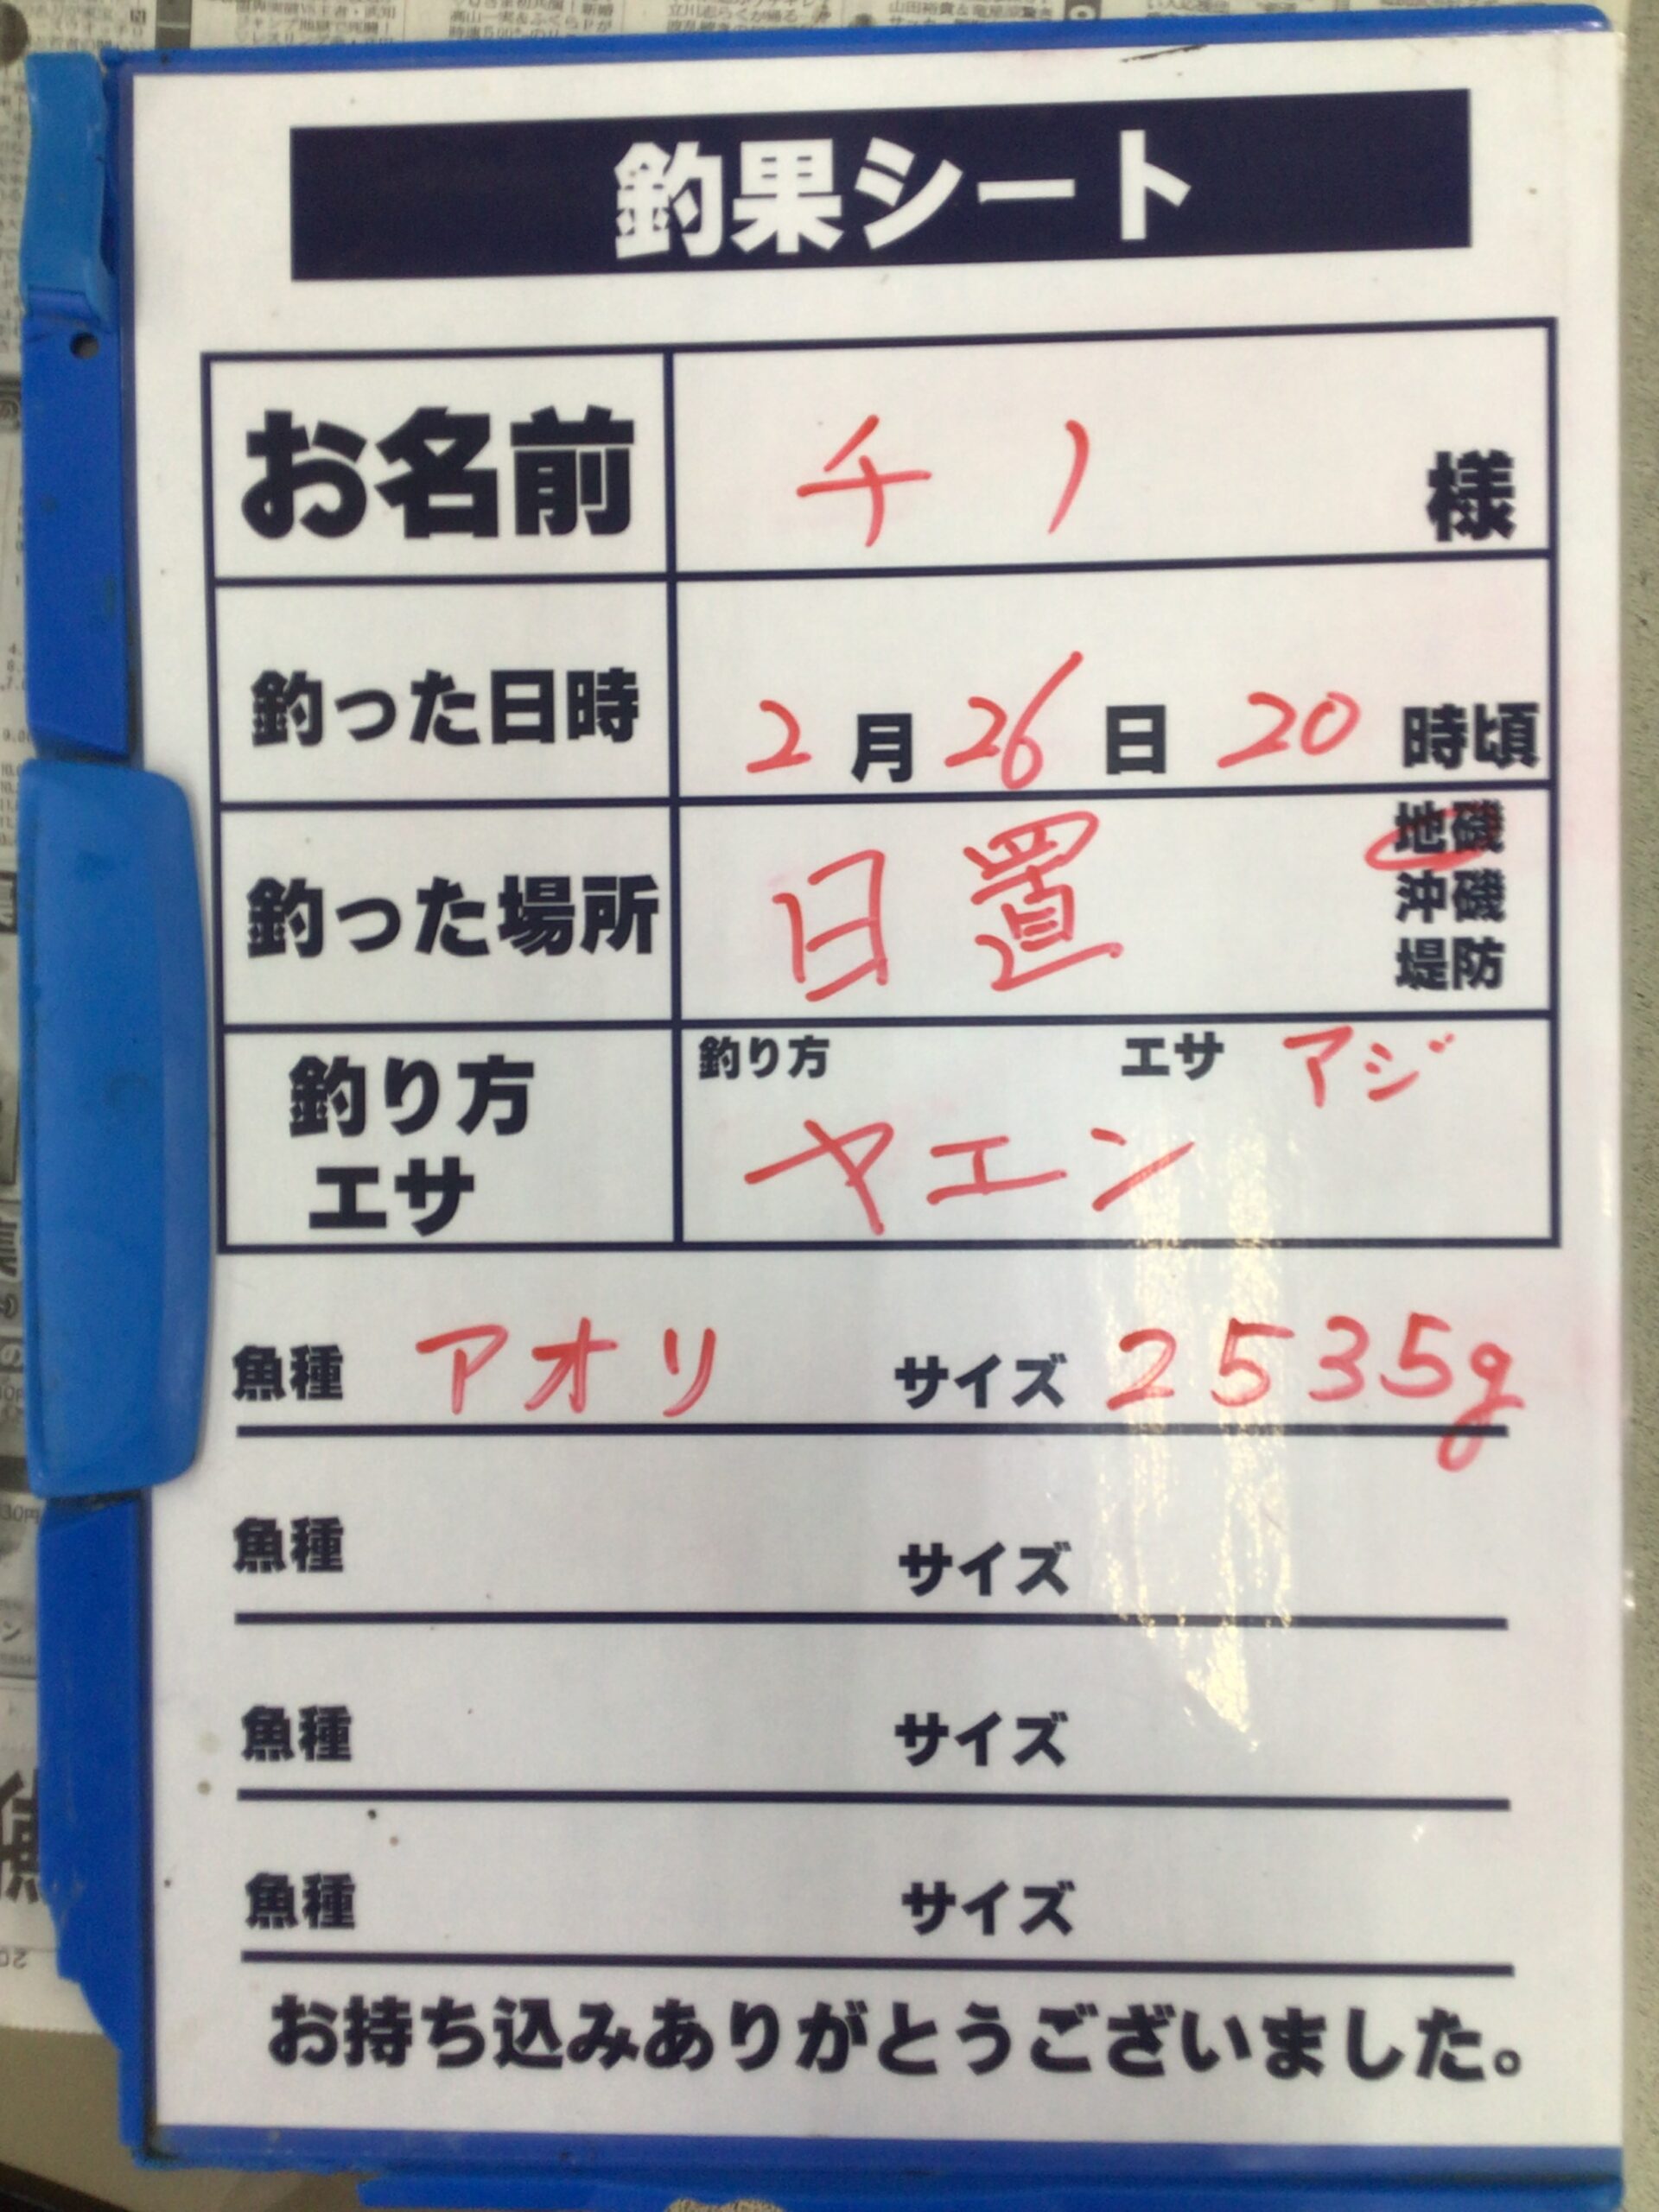 釣果シート
お名前 チノ 様
釣った日時 2月26日20時頃
釣った場所 日置 地磯
沖磯
堤防
釣り方 エサ アジ
釣り方
エサ
ヤエン
魚種 アオリ サイズ 2535g
魚種 サイズ
魚種 サイズ
魚種 サイズ
お持ち込みありがとうございました。